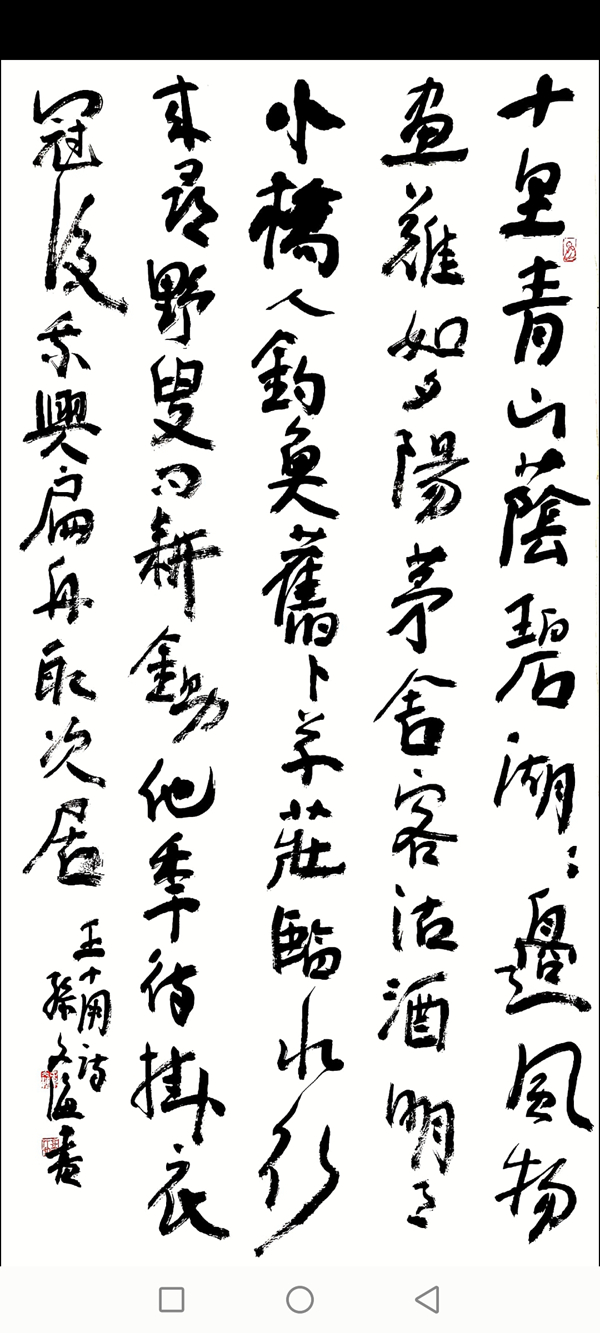 十里青山蔭碧湖〻邊風物
畫難如夕陽茅舍客沽酒明月
小橋人釣魚舊卜草莊臨水竹
來尋野叟問耕鋤他秊待掛衣
冠後乘興扁舟取次居
王十朋詩
孫文書